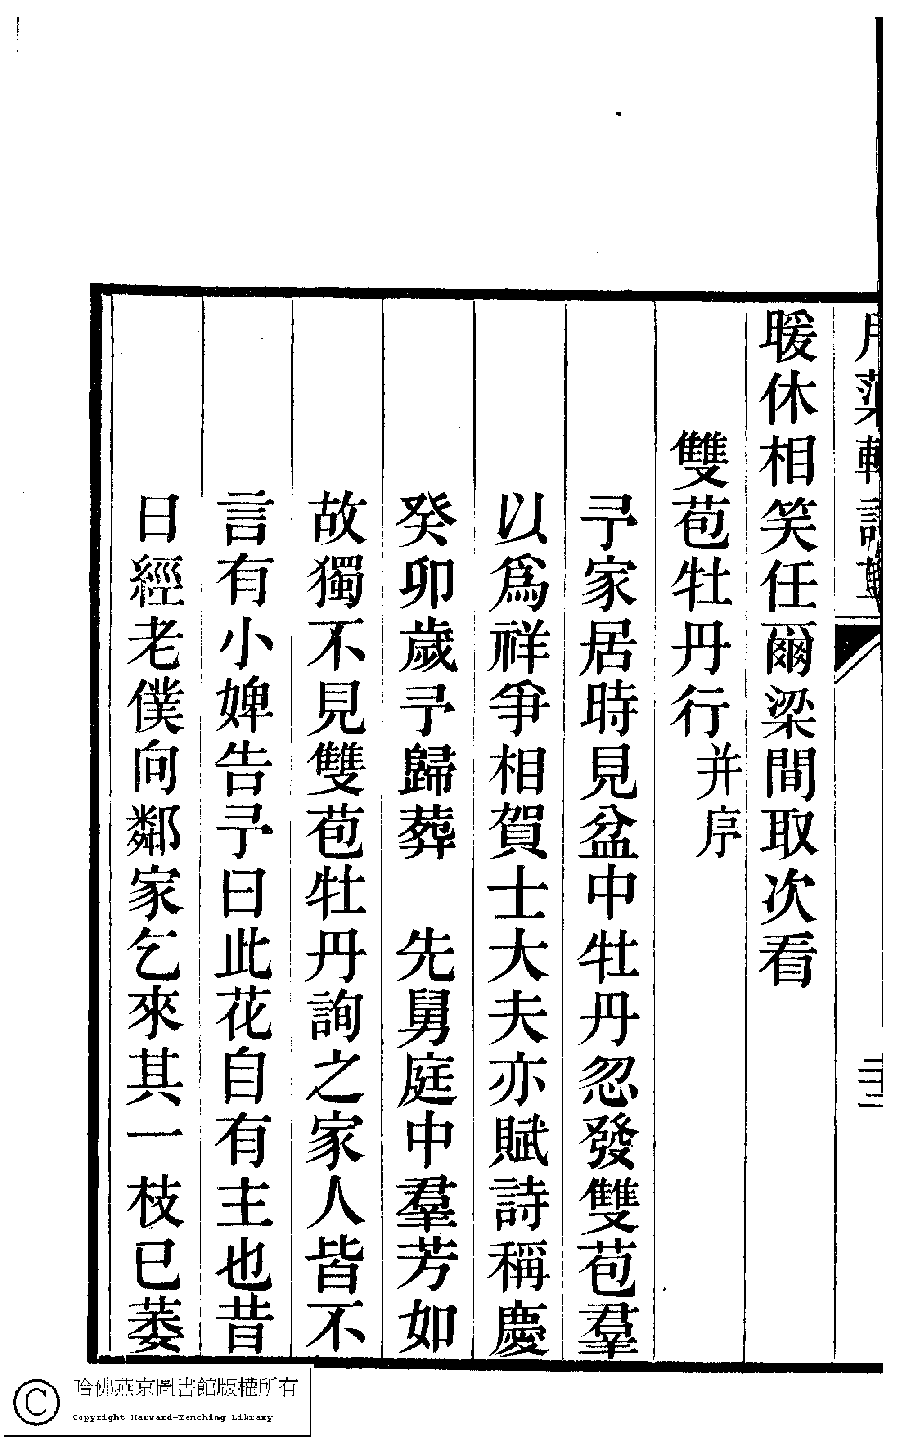 暖休相笑任爾梁間取次看
雙苞牡丹行并序
予家居時見盆中牡丹忽發雙苞羣
以爲祥爭相賀士大夫亦賦詩稱慶
癸卯歲予歸葬　先舅庭中羣芳如
故獨不見雙苞牡丹詢之家人皆不
言有小婢告予曰此花自有主也昔
日經老僕向鄰家乞來其一枝已萎
哈佛燕京圖書館版權所有
Copyright Harvard-Yenching Library